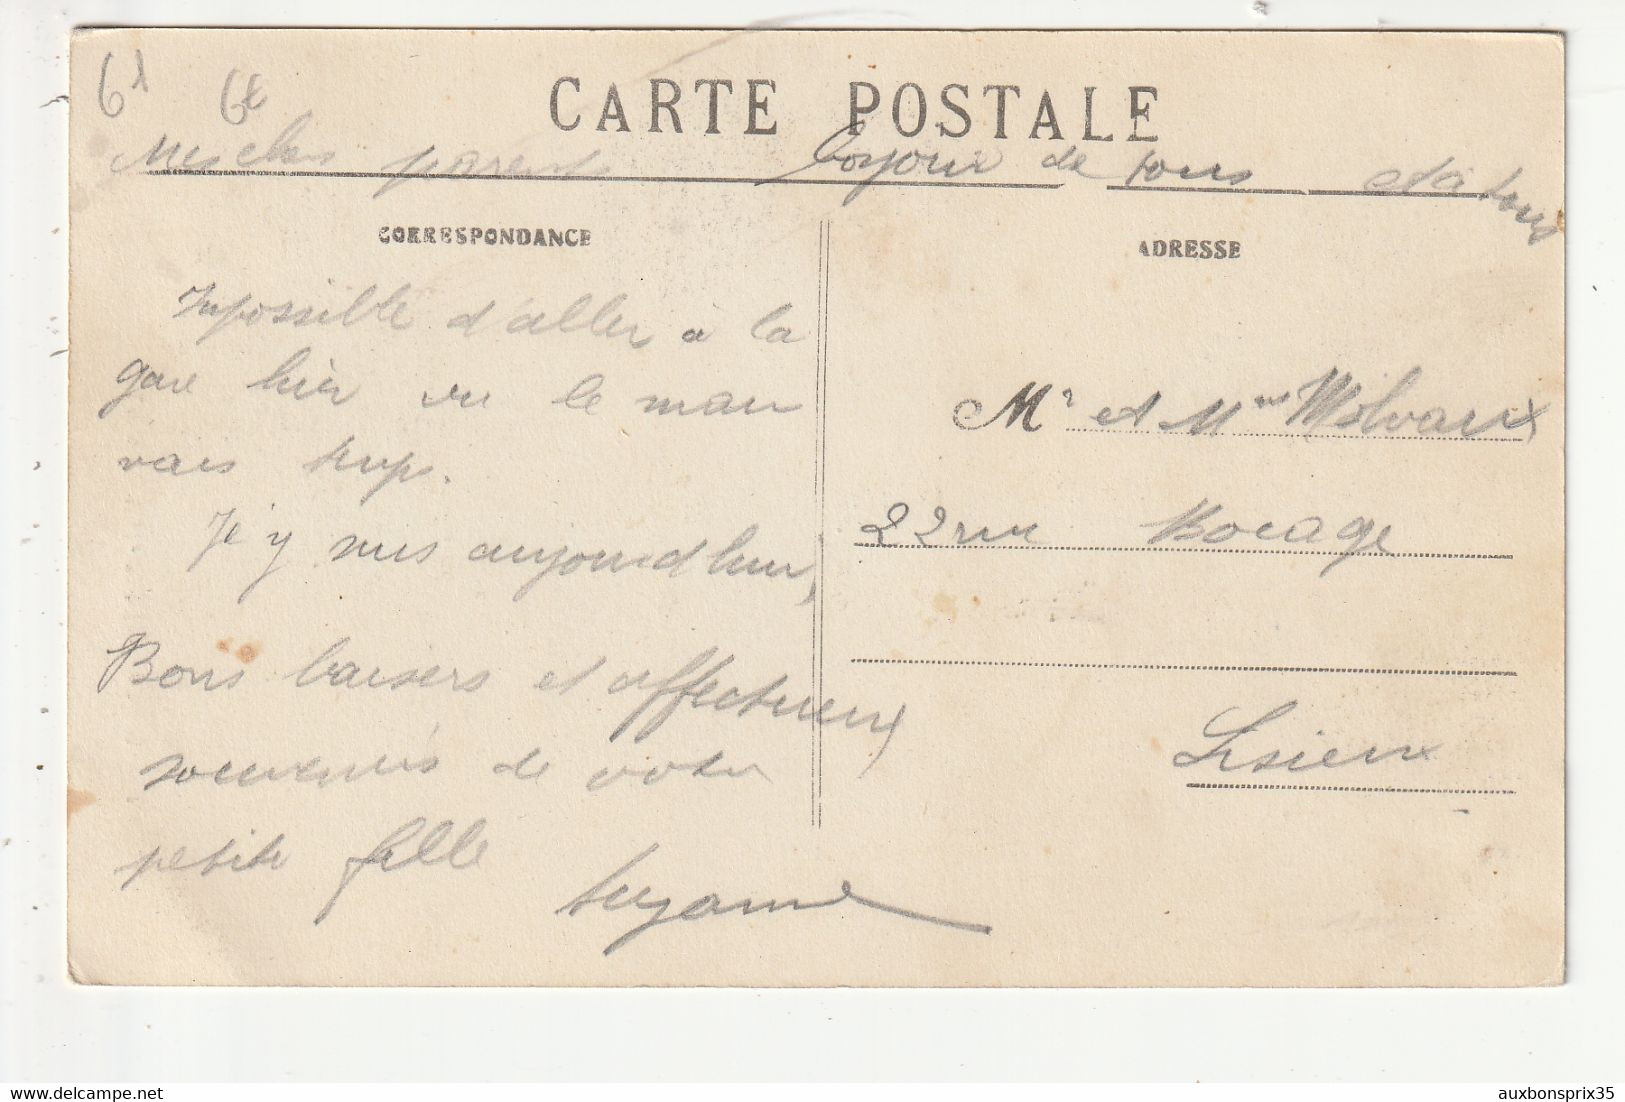 61
CARTE POSTALE
Mes chers parents Bonjour de tous et à tous
CORRESPONDANCE
ADRESSE
Impossible d'aller à la
gare hier vu le mau
vais temps.
J'y suis aujourd'hui,
Bons baisers et affectueux
souvenirs de votre
petite fille
Suzanne
Mr et Mme
22 rue Bocage
Lisieux
www.delcampe.net
auxbonsprix35